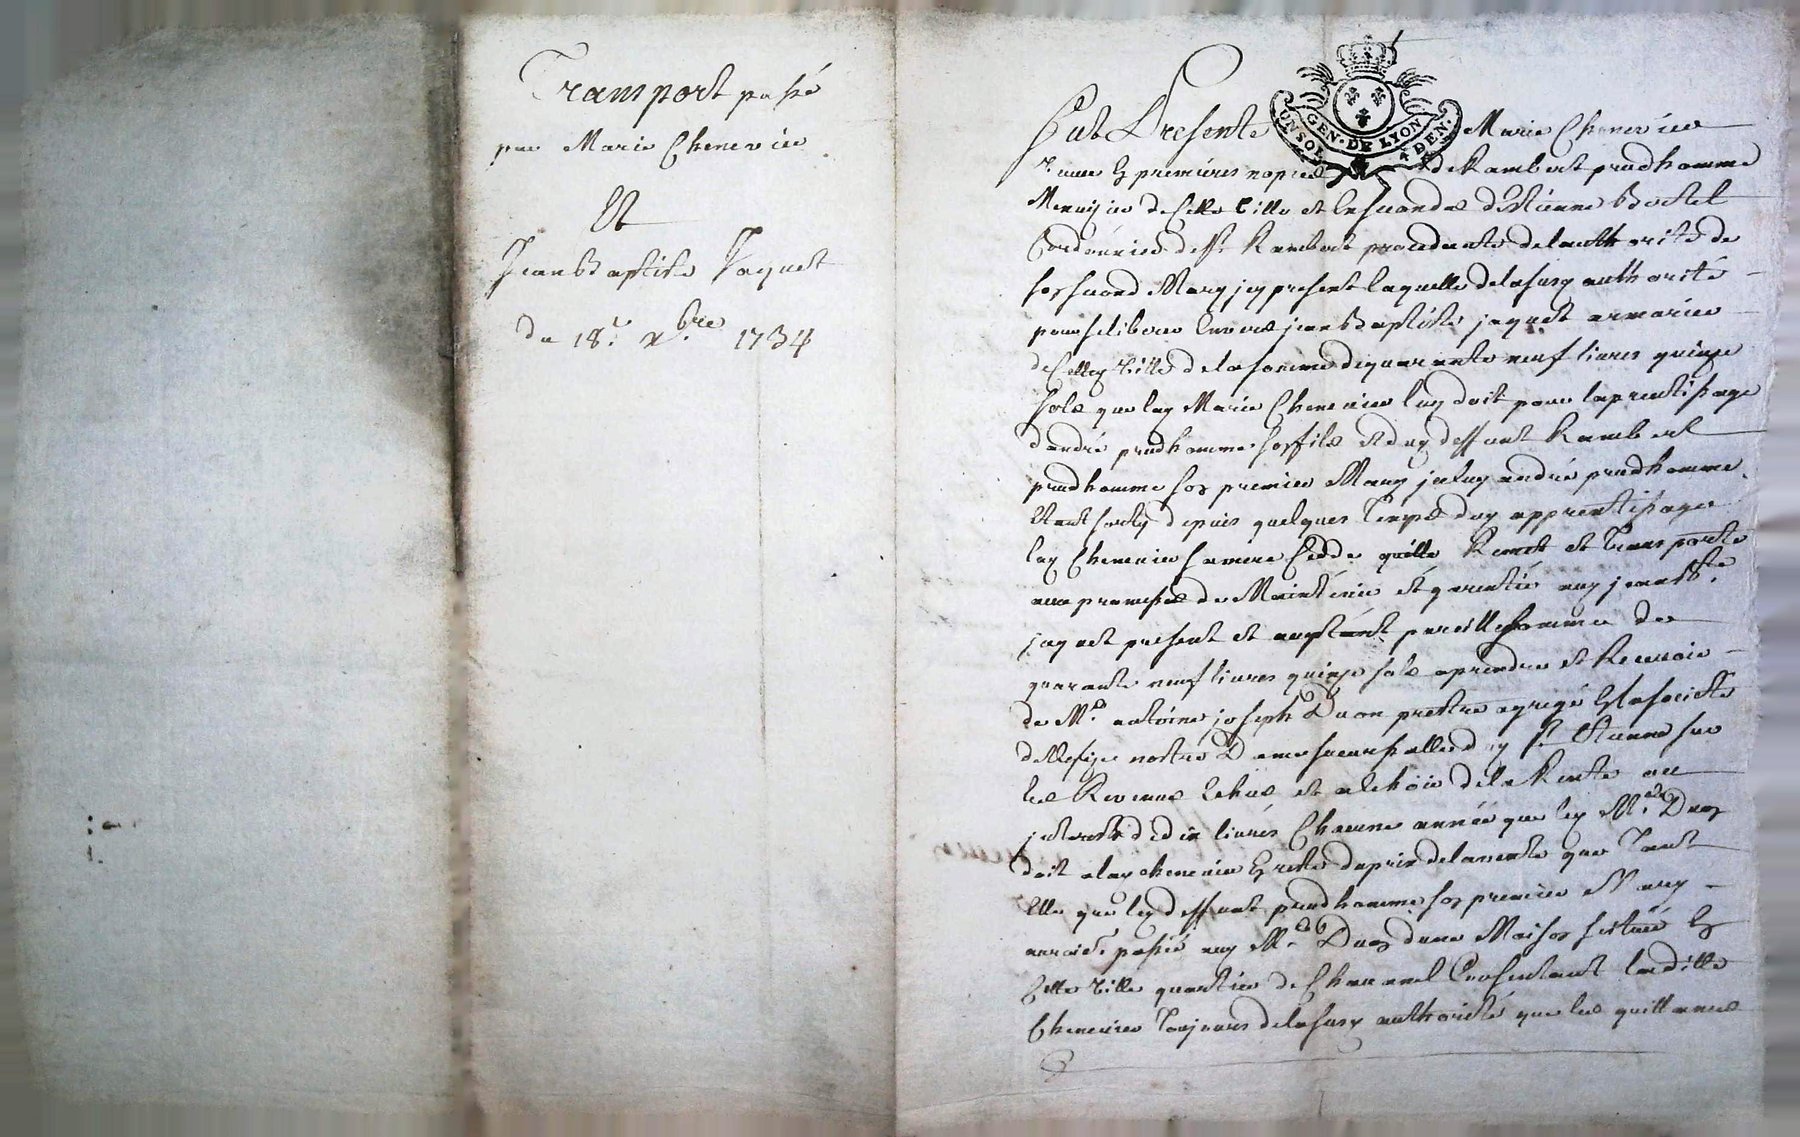 Transport passé
par Marie Chenevier
Et
Jean Baptiste Jaquet
du 18.e xbre 1734
GEN. DE LYON
UN SOL 4 DEN.
fut Presente Marie Chenevier
veuve premieres nopces de Rambert prudhomme
Menuisier de cette ville et en secondes d'Estienne
Cordonnier de St Rambert procedante de l'authorité de
son second Mary icy present laquelle de la susd authorité
pour se liberer envers jean Baptiste jaquet armurier
de cette ville de la somme de quarante neuf livres quinze
sols que lad Marie Chenevier luy doit pour l'aprentissage
d'andré prudhomme son fils et dud deffunt Rambert
prudhomme son premier Mary icelluy andré prudhomme
Etant sorty depuis quelques temps dud apprentissage
lad Chenevier sa mere cedde quitte Remet et transporte
avec promesse de Maintenir et garentir aud jean Bte
jaquet present et acceptant pareille somme de
quarante neuf livres quinze sols a prendre et Recevoir
de Mre antoine joseph Duon prestre agregé En la societé
de l'esglize nostre Dame succursalle de St Etienne sur
les Revenus Echus et a Echoir de la Rente ou
interests de dix livres Chacune année que led Mre Duon
doit a lad chenevier En reste du prix de la vente que tant
Elle que led deffunt prudhomme son premier Mary
auroient passé aud Mre Duon d'une Maison scituée En
Cette ville quartier de Chavanel Consentant laditte
Chenevier toujours de la susd authorité que les quittances